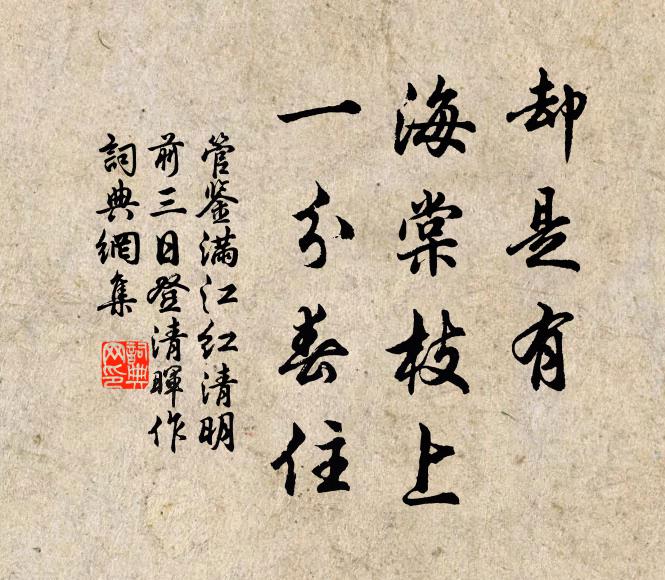 却是有
海棠枝上
一分春住
管鉴满江红清明
前三日登清暉作
詞典網集
詞典网印